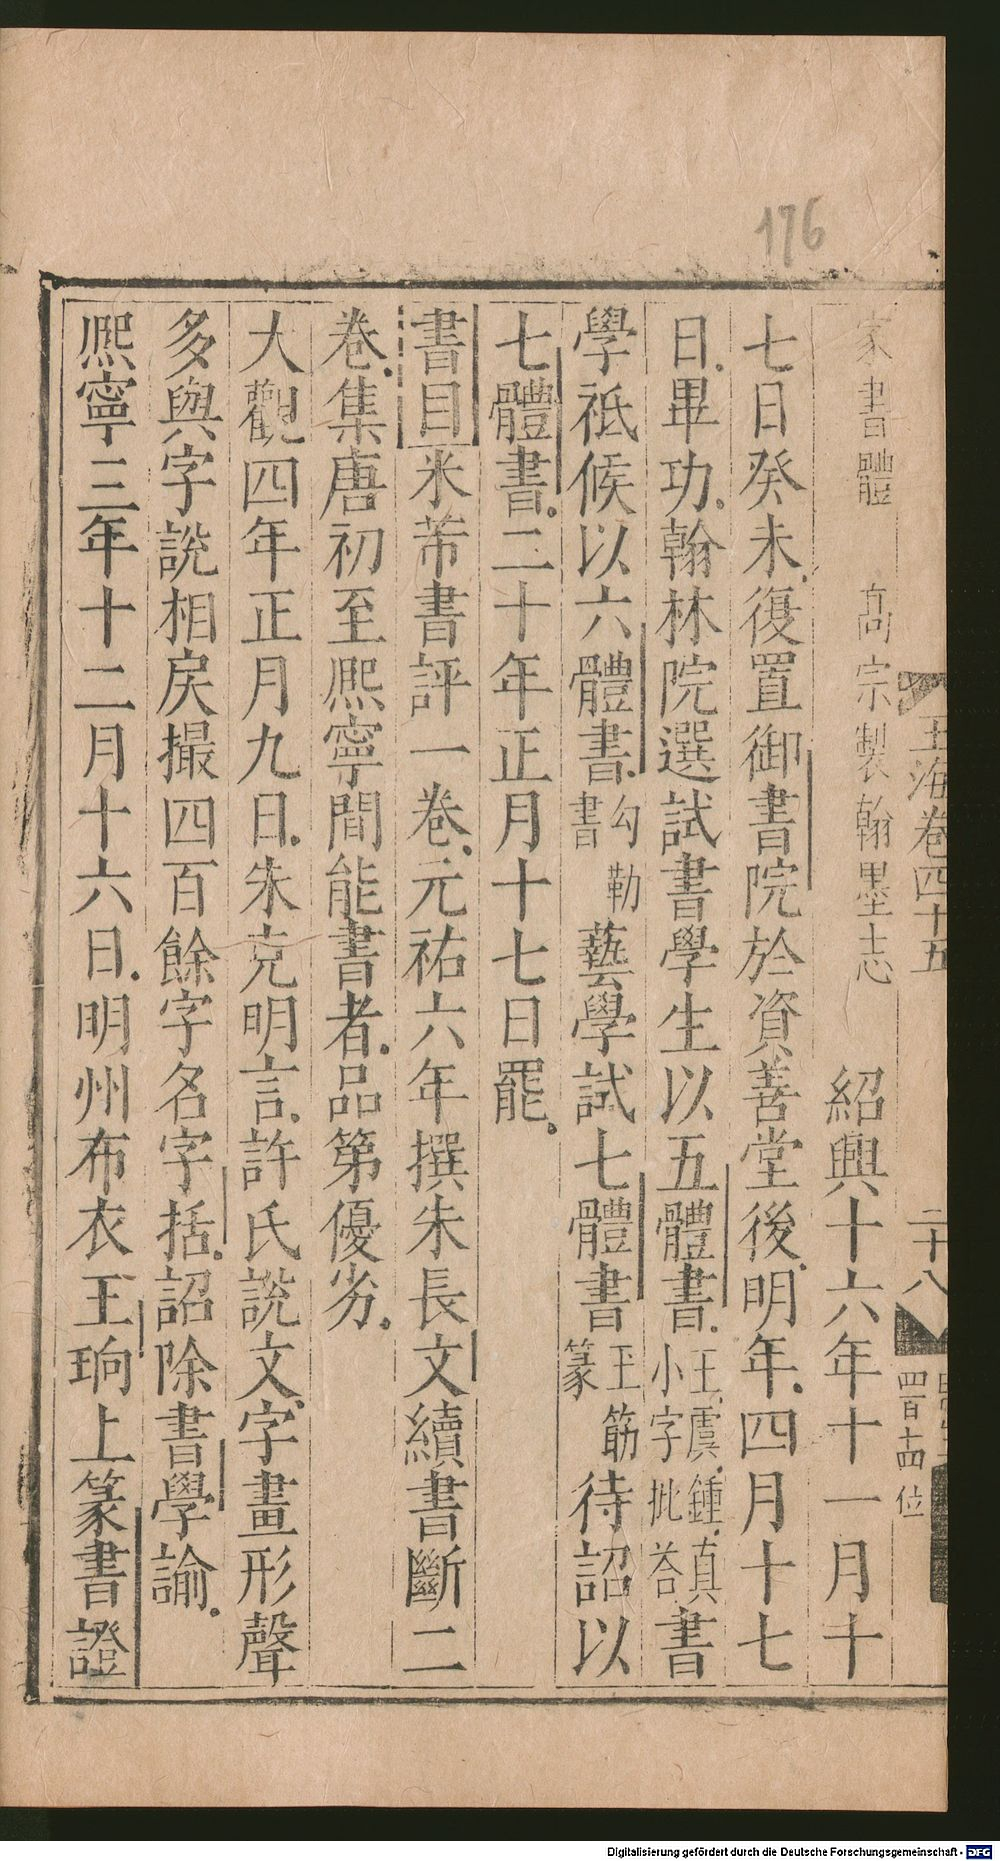 176
玉海卷四十五 二十八
四百十四 位
家書體 高宗製翰墨志 紹興十六年十一月十
七日癸未復置御書院於資善堂後明年四月十七
日畢功翰林院選試書學生以五體書小字批荅王虞鍾真書
學祗候以六體書勾勒書藝學試七體書玉筯篆待詔以
七體書二十年正月十七日罷
書目米芾書評一卷元祐六年撰朱長文續書斷二
卷集唐初至熈寧間能書者品第優劣
大觀四年正月九日朱克明言許氏說文字畫形聲
多與字說相戾撮四百餘字名字括詔除書學諭
熈寧三年十二月十六日明州布衣王珦上篆書證
Digitalisierung gefördert durch die Deutsche Forschungsgemeinschaft - DFG